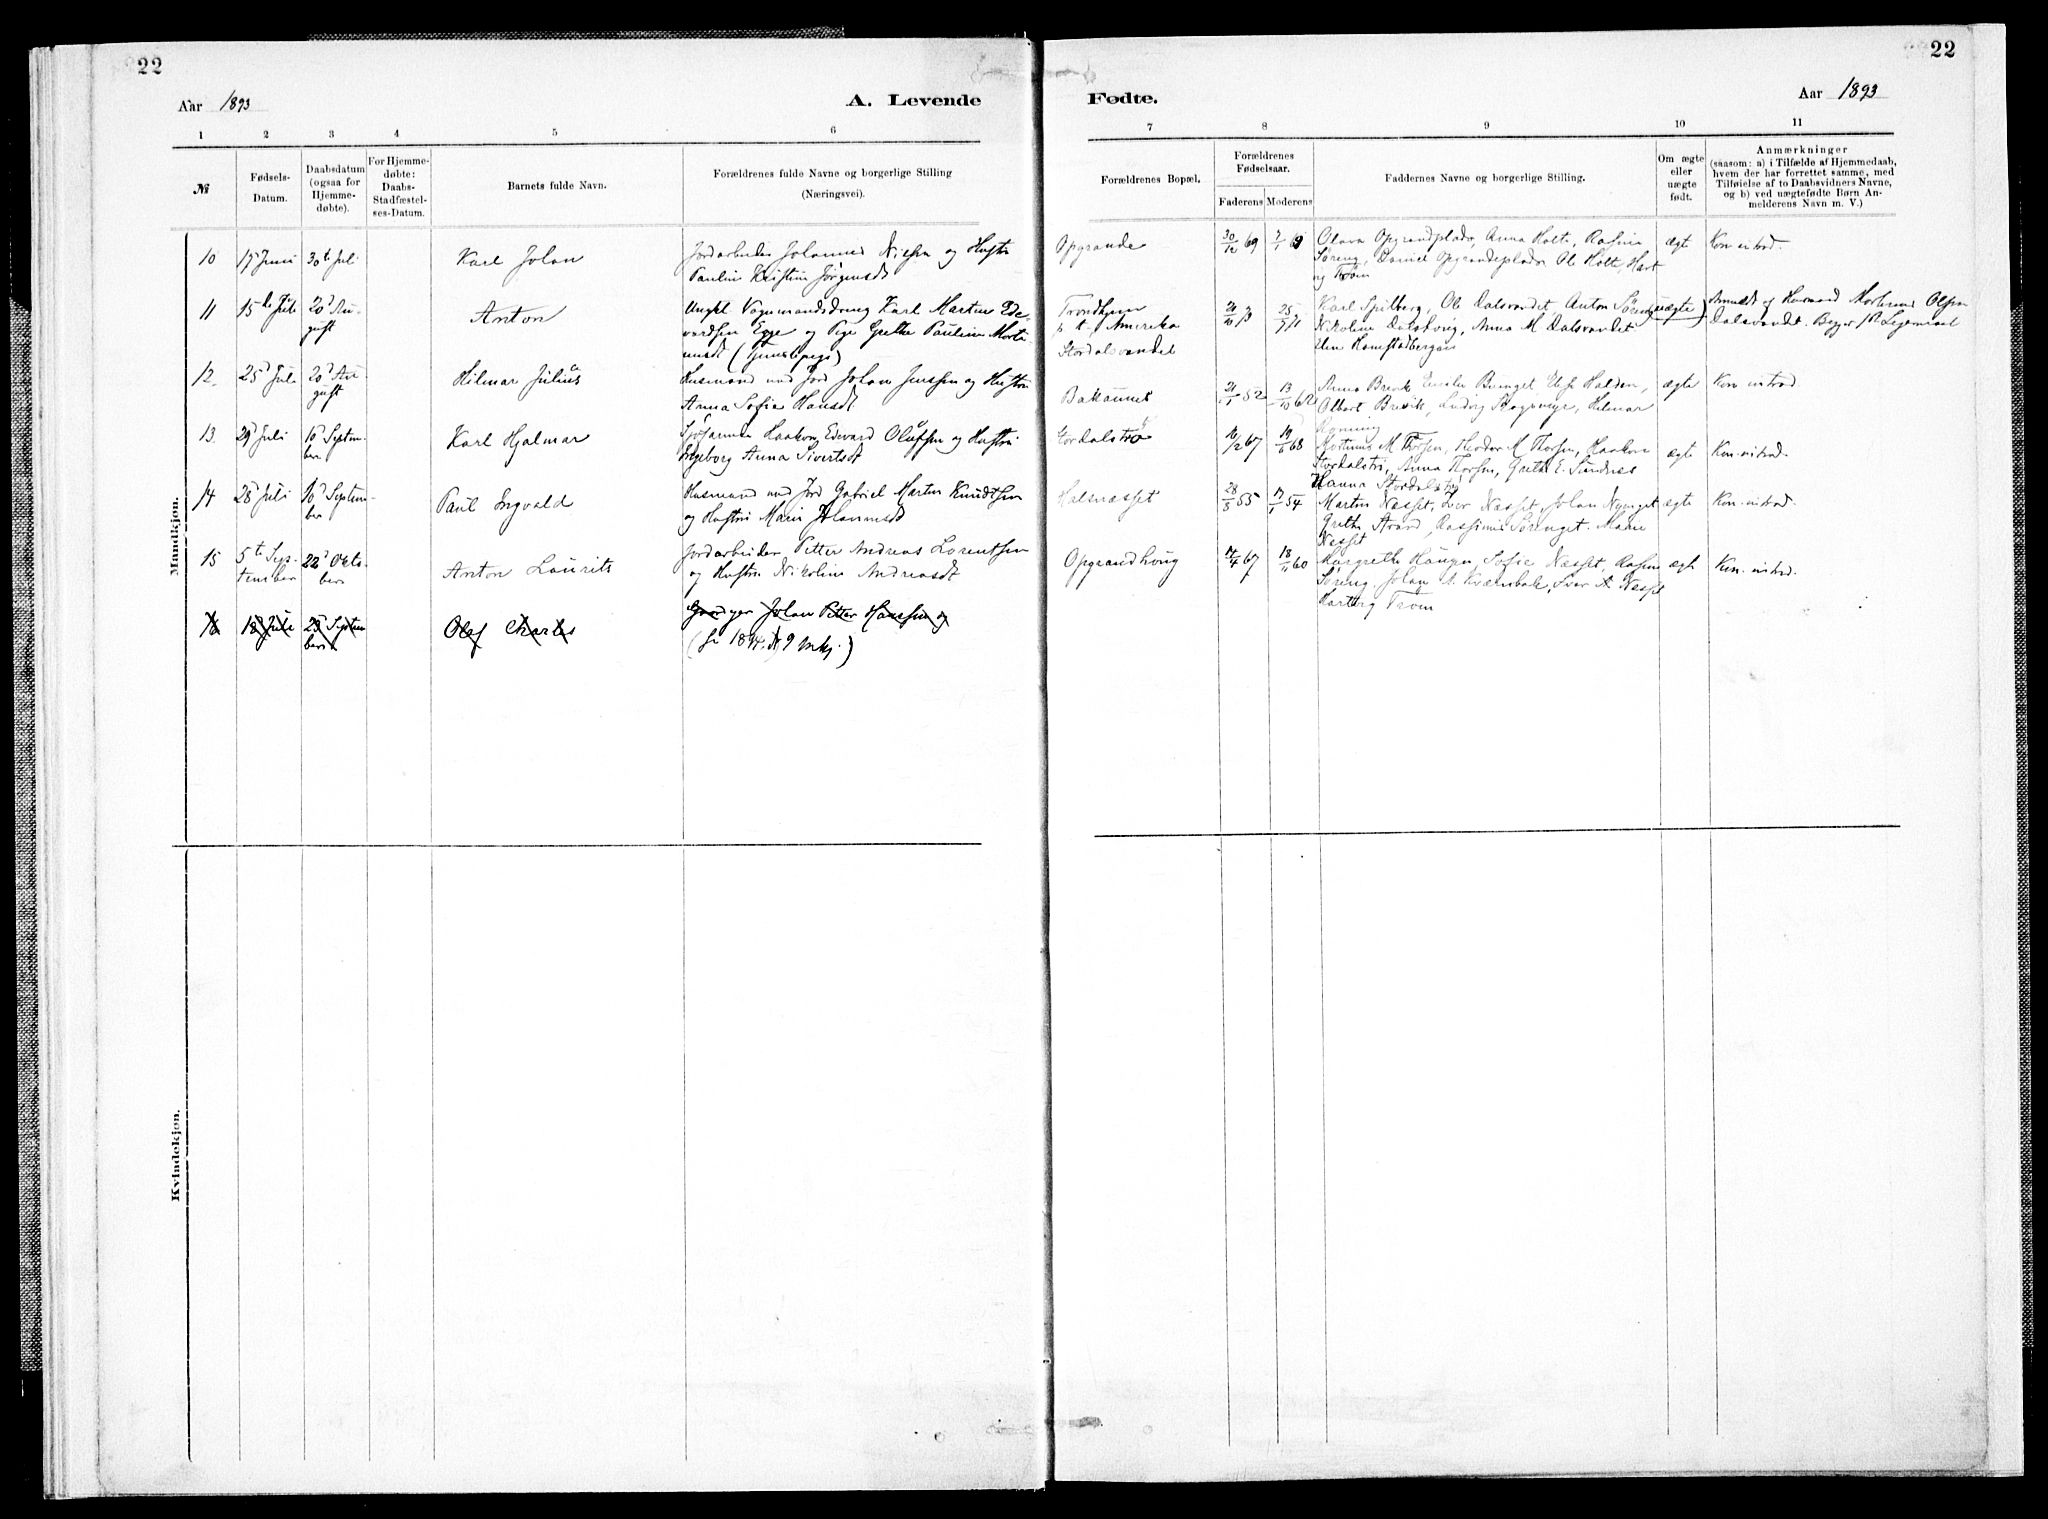 22
22
Aar 1893
A. Levende
Fødte.
Aar 1893
1 2 3 4 5 6
7 8 9 10 11
№
Fødsels-Datum.
Daabsdatum (ogsaa for Hjemme-døbte).
For Hjemme-døbte: Daabs-Stadfæstel-ses-Datum.
Barnets fulde Navn.
Forældrenes fulde Navne og borgerlige Stilling
(Næringsvei).
Forældrenes Bopæl.
Forældrenes Fødselsaar.
Faderens Moderens
Faddernes Navne og borgerlige Stilling.
Om ægte eller uægte født.
Anmærkninger
(saasom: a) i Tilfælde af Hjemmedaab,
hvem der har forrettet samme, med
Tilføielse af to Daabsvidners Navne,
og b) ved uægtefødte Børn An-
melderens Navn m. V.)
Mandkjøn.
10 17 Juni 30te Juli Karl Johan Jordarbeider Johannes Nilsen og Hustru
Pauline Kristine Jørgensdt
Opgrande 30/12 69 Olava Opgrandplads, Anna Holte, Rasmine
Søreng, Daniel Opgrandeplads Ole Holte, Hart
og Trøen
ægt Kon. introd.
11 15de Juli 20d Au-
gust
Anton
Ungkl. Vognmandsdreng Karl Martin Ed-
vardsen Egge og Pige Grethe Pauline Morti-
nusdt (Tjenestepige)
Trondhjem
p. t. Amerika
Stordalsvandet
25/7 71
Karl Spilberg, Ole Dalsvandet Anton Søreng
Nikoline Dalshoug, Anna M Dalsvandet
uægte
Anmeldt af Husmand Mortinus Olsen
Dalsvandet.
12. 25d Juli 20d Au-
gust
Hilmar Julius
Husmand med Jord Johan Jenssen og Hustru
Anna Sofie Hansdt
Bakaunet 21/1 52 13/10 62
Anna Brevik Emilie Bunget Elise Halden,
Albert Brevik, Ludvig Skogsmyr, Hilmar
Røning
ægte Kon introd
13. 29d Juli 10d Septem-
ber
Karl Hjalmar
Sjøfarende Haakon Edvard Olufsen og Hustru
Ingeborg Anna Sivertsdt
Stordalstrø 16/2 67 19/6 68
Mortinus M Thorsen, Theodor M Thorsen, Haakon
Stordalstrø, Anna Thorsen, Grethe E. Sundnes
Hanna Stordalstrø
ægt Kon. introd.
14 28d Juli 10d Septem-
ber
Paul Ingvald
Husmand med Jord Gabriel Martin Knudtsen
og Hustru Marie Johannesdt
Halsnæsset 28/3 55 17/1 54
Martin Næsset, Iver Næsset, Johan Nynget
Grethe Strand, Rassinus Sørenget. Maren
Næsset
ægte Kon. introd.
15 5te Sep-
tember
22d Okto-
ber
Anton Laurits
Jordarbeider Petter Andreas Lorentsen
og Hustru Nikoline Andreasdt
Opgrandhoug 14/4 67 18/11 60
Margrethe Haugen, Sofie Næsset, Rasmine
Søreng. Johan A. Kvænbak, Iver A Næsse
Hartvig Trøen
ægt Kon. introd.
16 18d Juli 25d Septem
ber
Olaf Charles
Gaardejer Johan Petter Hanssen og
(Se 1894. № 9 mkj.)
Kvindekjøn.